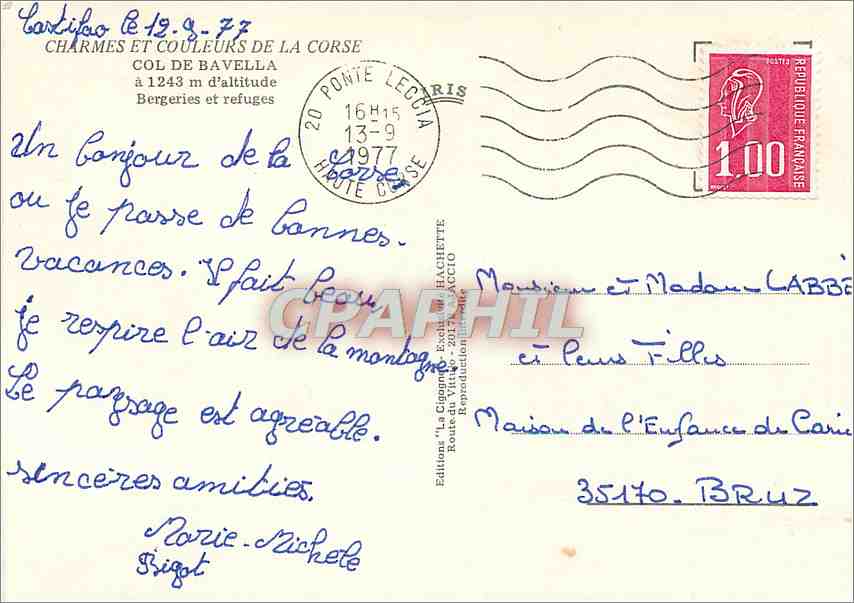 Castifao le 12.9.77
CHARMES ET COULEURS DE LA CORSE
COL DE BAVELLA
à 1243 m d'altitude
Bergeries et refuges
20 PONTE LECCIA
16H15
13-9
1977
HAUTE CORSE
RIS
POSTES
REPUBLIQUE FRANÇAISE
1,00
Un bonjour de la Corse
ou je passe de bonnes.
vacances. Il fait beau,
je respire l'air de la montagne.
Le paysage est agréable.
sincères amitiés.
Marie-Michele
Bigot
Editions "La Cigogne" - Exclusivité HACHETTE
Route du Vittulo - 20178 AJACCIO
Reproduction Interdite
CPAPHIL
Monsieur et Madame LABBÉ
et leurs Filles
Maison de l'Enfance de Caric
35170. BRUZ